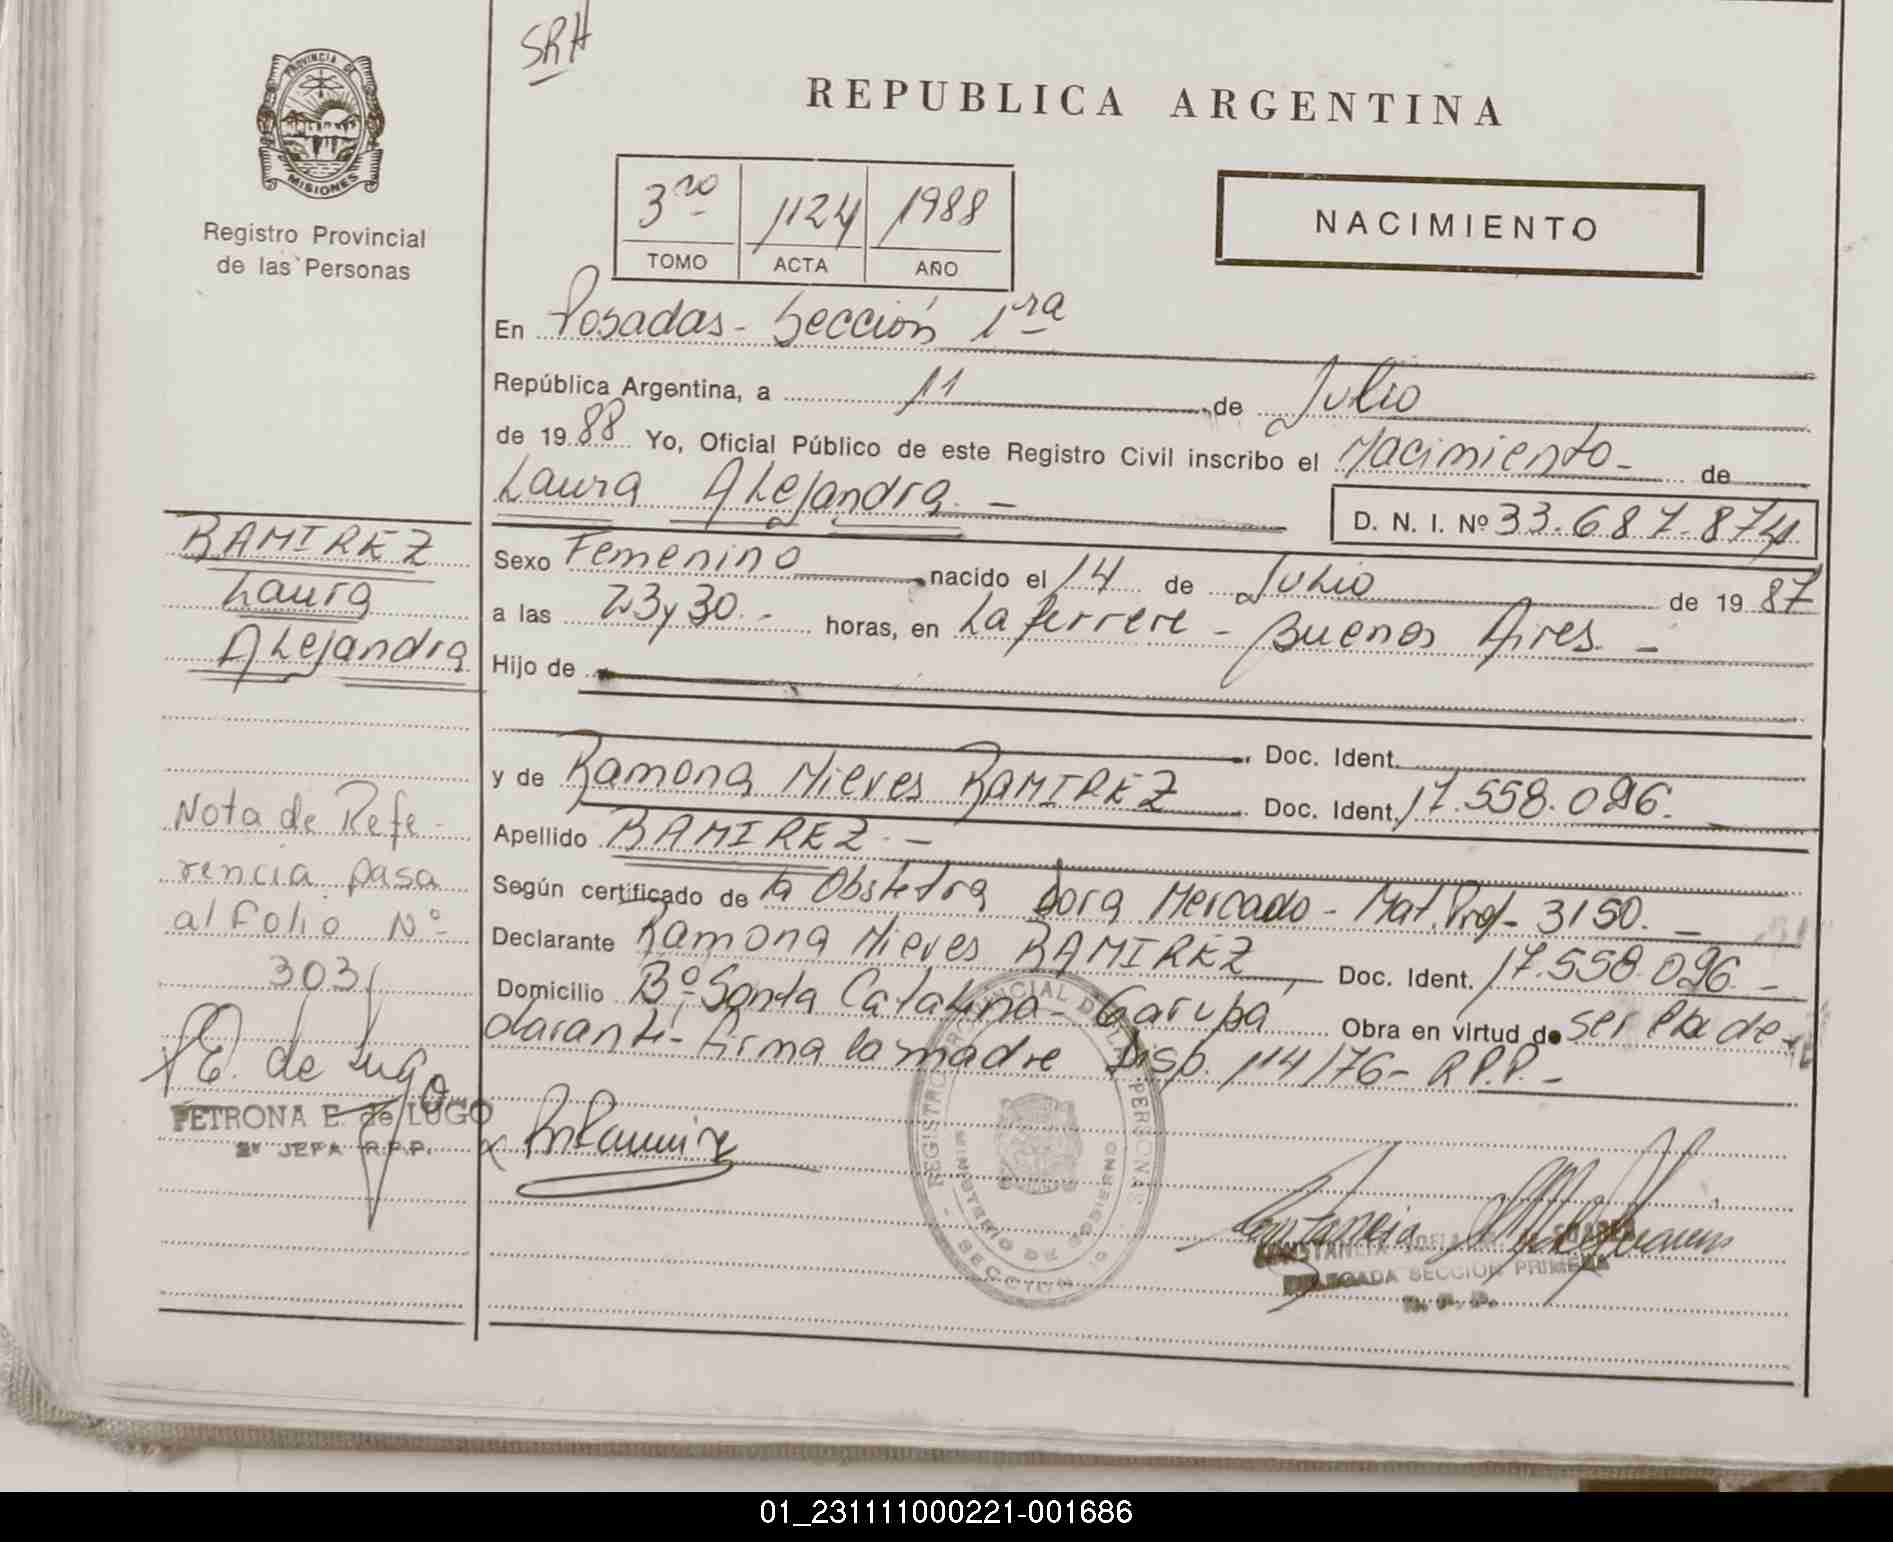 SRH
PROVINCIA DE
MISIONES
Registro Provincial
de las Personas
REPUBLICA ARGENTINA
3ro 1124 1988
TOMO ACTA AÑO
NACIMIENTO
En Posadas - Sección 1ra
República Argentina, a 11 de Julio
de 1988 Yo, Oficial Público de este Registro Civil inscribo el Nacimiento - de
Laura Alejandra. -
D. N. I. Nº 33.687.874
RAMIREZ
Laura
Alejandra
Sexo Femenino nacido el 14 de Julio de 1987
a las 23y30. - horas, en Laferrere - Buenos Aires. -
Hijo de
Doc. Ident.
y de Ramona Nieves RAMIREZ Doc. Ident. 17.558.096.
Apellido RAMIREZ. -
Según certificado de la Obstetra Dora Mercado - Mat. Prof - 3150. -
Declarante Ramona Nieves RAMIREZ, Doc. Ident. 17.558.096. -
Domicilio Bº Santa Catalina - Garupá Obra en virtud de ser la de-
clarante - firma la madre Disp. 114/76 - R.P.P. -
Nota de Refe-
rencia pasa
al Folio Nº
303
E. de Lugo
PETRONA E. de LUGO
2º JEFA R.P.P.
REGISTRO PROVINCIAL DE LAS PERSONAS
MINISTERIO DE GOBIERNO
SECCION
CONSTANCIA SUAREZ
DELEGADA SECCION PRIMERA
R. P. P.
01_231111000221-001686